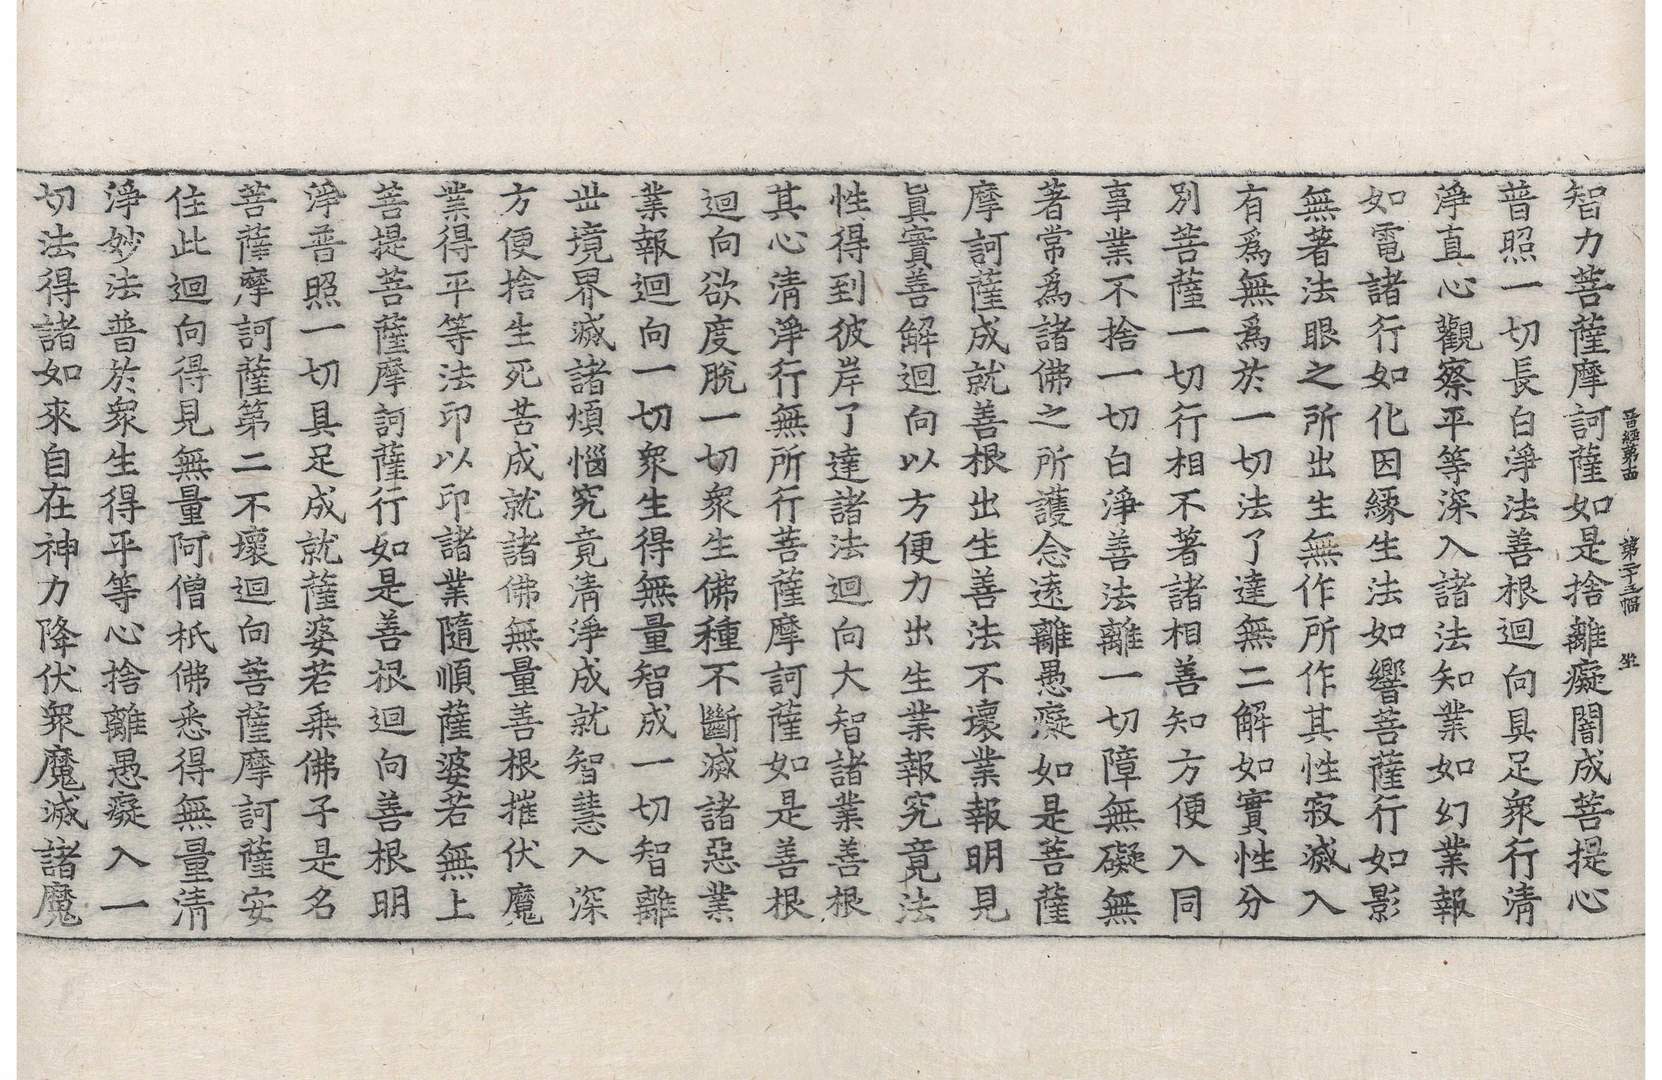 晉經第十四 第十五幅 坐
智力菩薩摩訶薩如是捨離癡闇成菩提心
普照一切長白淨法善根迴向具足衆行清
淨直心觀察平等深入諸法知業如幻業報
如電諸行如化因緣生法如響菩薩行如影
無著法眼之所出生無作所作其性寂滅入
有爲無爲於一切法了達無二解如實性分
別菩薩一切行相不著諸相善知方便入同
事業不捨一切白淨善法離一切障無礙無
著常爲諸佛之所護念遠離愚癡如是菩薩
摩訶薩成就善根出生善法不壞業報明見
眞實善解迴向以方便力出生業報究竟法
性得到彼岸了達諸法迴向大智諸業善根
其心清淨行無所行菩薩摩訶薩如是善根
迴向欲度脫一切衆生佛種不斷滅諸惡業
業報迴向一切衆生得無量智成一切智離
世境界滅諸煩惱究竟清淨成就智慧入深
方便捨生死苦成就諸佛無量善根摧伏魔
業得平等法印以印諸業隨順薩婆若無上
菩提菩薩摩訶薩行如是善根迴向善根明
淨普照一切具足成就薩婆若乘佛子是名
菩薩摩訶薩第二不壞迴向菩薩摩訶薩安
住此迴向得見無量阿僧祇佛悉得無量清
淨妙法普於衆生得平等心捨離愚癡入一
切法得諸如來自在神力降伏衆魔滅諸魔